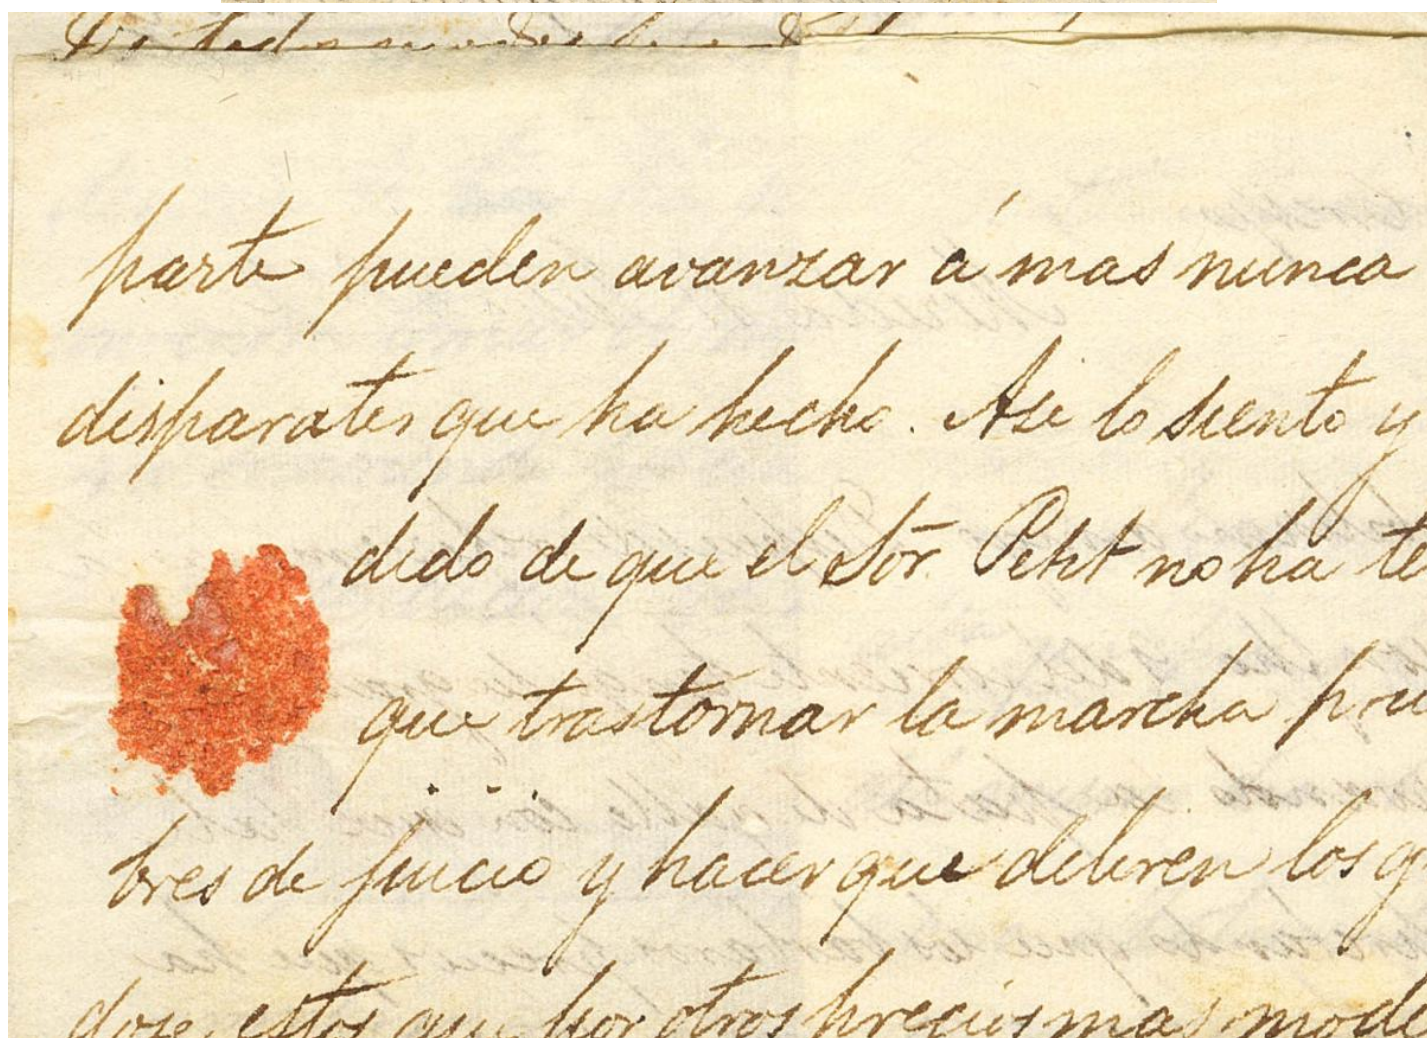 parte pueden avanzar á mas nunca
disparates que ha hecho. Asi lo siento y
dido de que el Sör. Petit no ha te
que trastornar la marcha pru
bres de juicio y hacer que deliren los q
dose estos que por otros precios mas mode